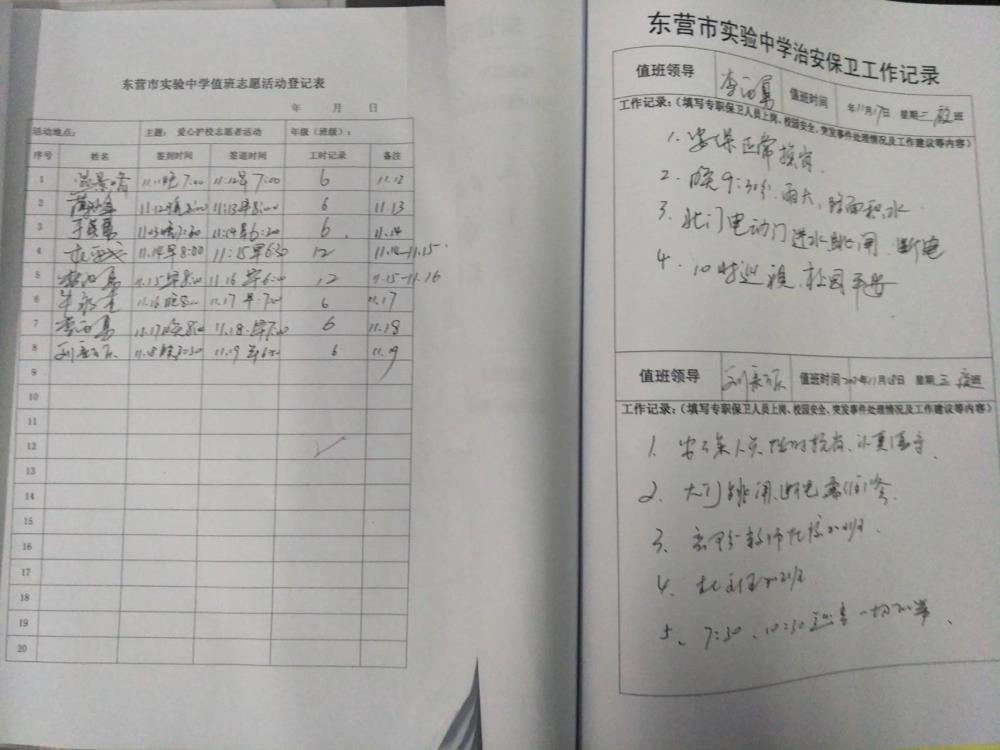 东营市实验中学值班志愿活动登记表
年 月 日
活动地点: 主题: 爱心护校志愿者活动 年级(班级):
序号 姓名 签到时间 签退时间 工时记录 备注
1 11.11晚7:00 11.12早7:00 6 11.12
2 11.12 11.13早 6 11.13
3 11.14早6:30 6 11.14
4 11.14早8:00 11:15早6:30 12 11.14-11.15
5 11.15早8:00 11.16早6:00 12 11.15-11.16
6 11.16晚8:00 11.17早7:00 6 11.17
7 11.17晚8:00 11.18早7:00 6 11.18
8 11.18晚 11.19早6:30 6 11.19
9
10
11
12
13
14
15
16
17
18
19
20
东营市实验中学治安保卫工作记录
值班领导 值班时间 年11月17日 星期二 夜班
工作记录:(填写专职保卫人员上岗、校园安全、突发事件处理情况及工作建议等内容)
1. 安保正常执岗
2. 晚9:30分,雨大,路面积水
3. 北门电动门进水跳闸,断电
4. 10时巡视,校园平安
值班领导 值班时间 2020年11月18日 星期三 夜班
工作记录:(填写专职保卫人员上岗、校园安全、突发事件处理情况及工作建议等内容)
1. 安保人员按时执岗、认真
2. 大门跳闸、断电需维修
3. 部分教师在校加班
4. 主任加班
5、7:30、10:30巡查一切正常、